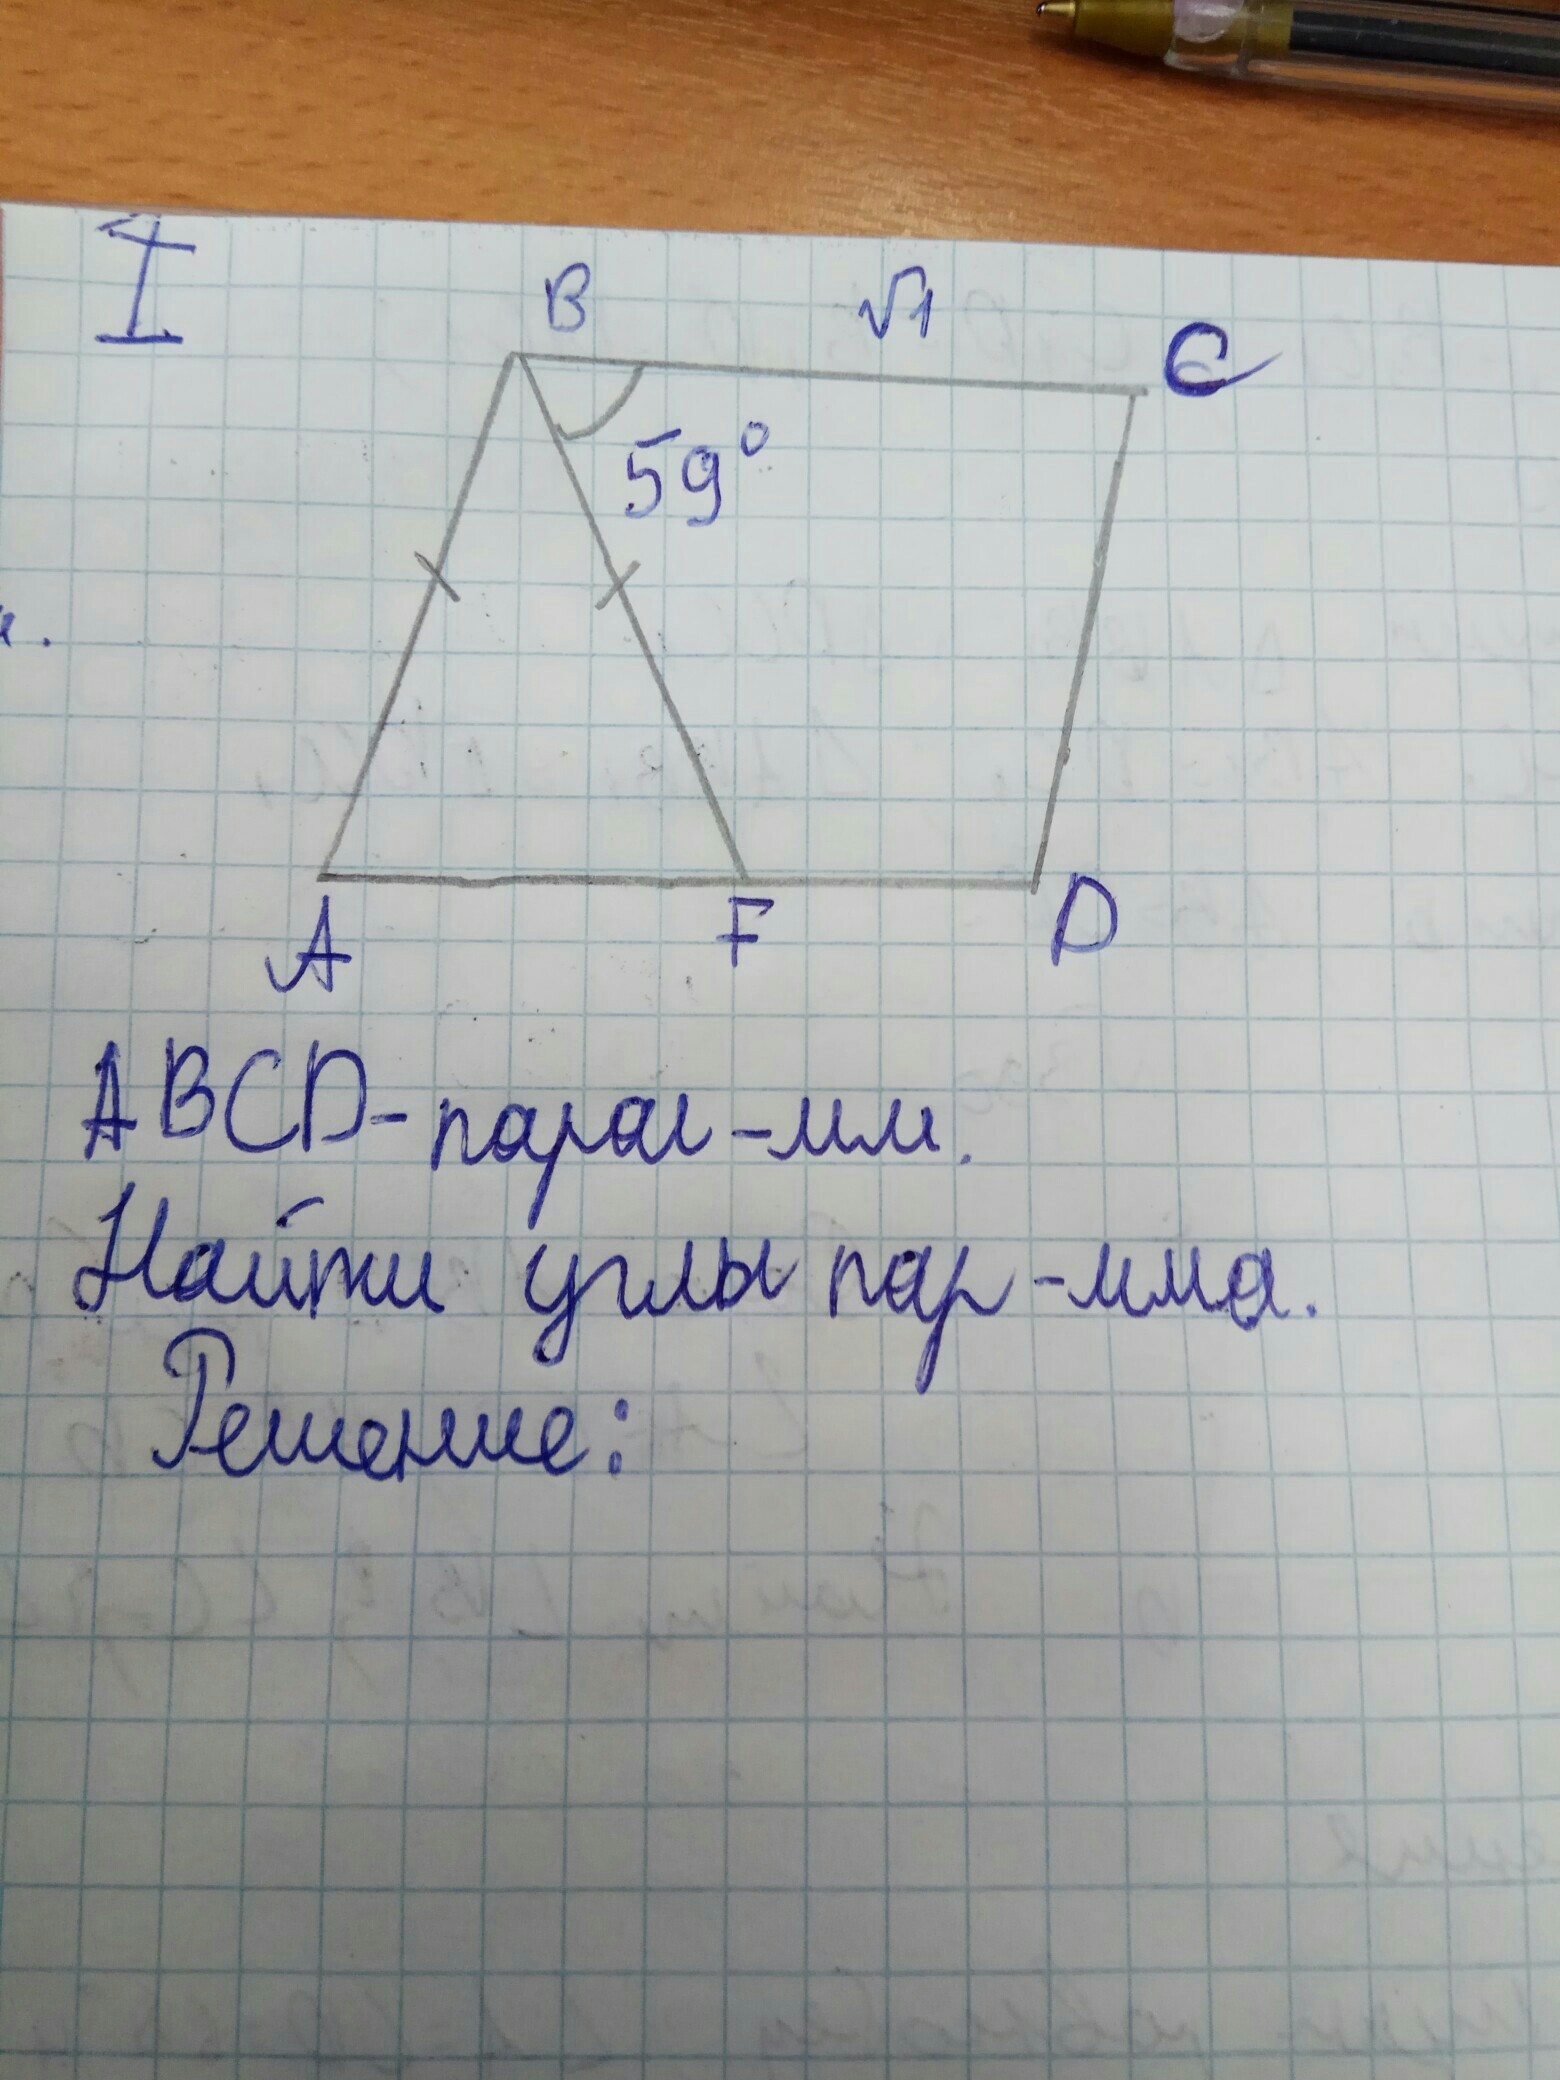 I
B √1 C
59°
A F D
ABCD-парал-мм.
Найти углы пар-мма.
Решение: